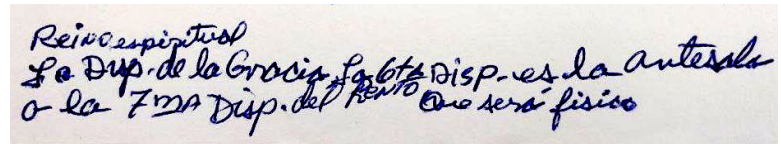 Reino espiritual
La Disp. de la Gracia, La 6ta Disp. es la antesala
a la 7ma Disp. del REINO Que será físico